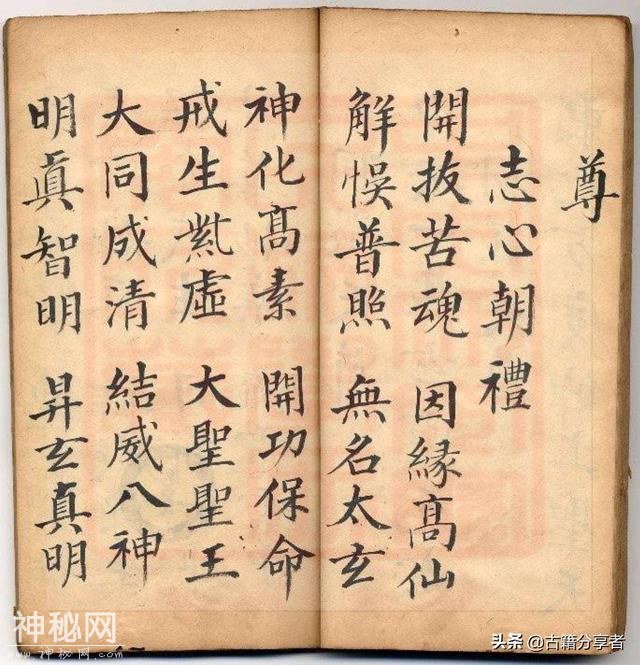 尊
志心朝禮
開拔苦魂 因緣高仙
解悮普照 無名太玄
神化髙素 開功保命
戒生炁虛 大聖聖王
大同成清 結威八神
明眞智明 昇玄真明
神秘网
www.神秘网.com
头条 @古籍分享者